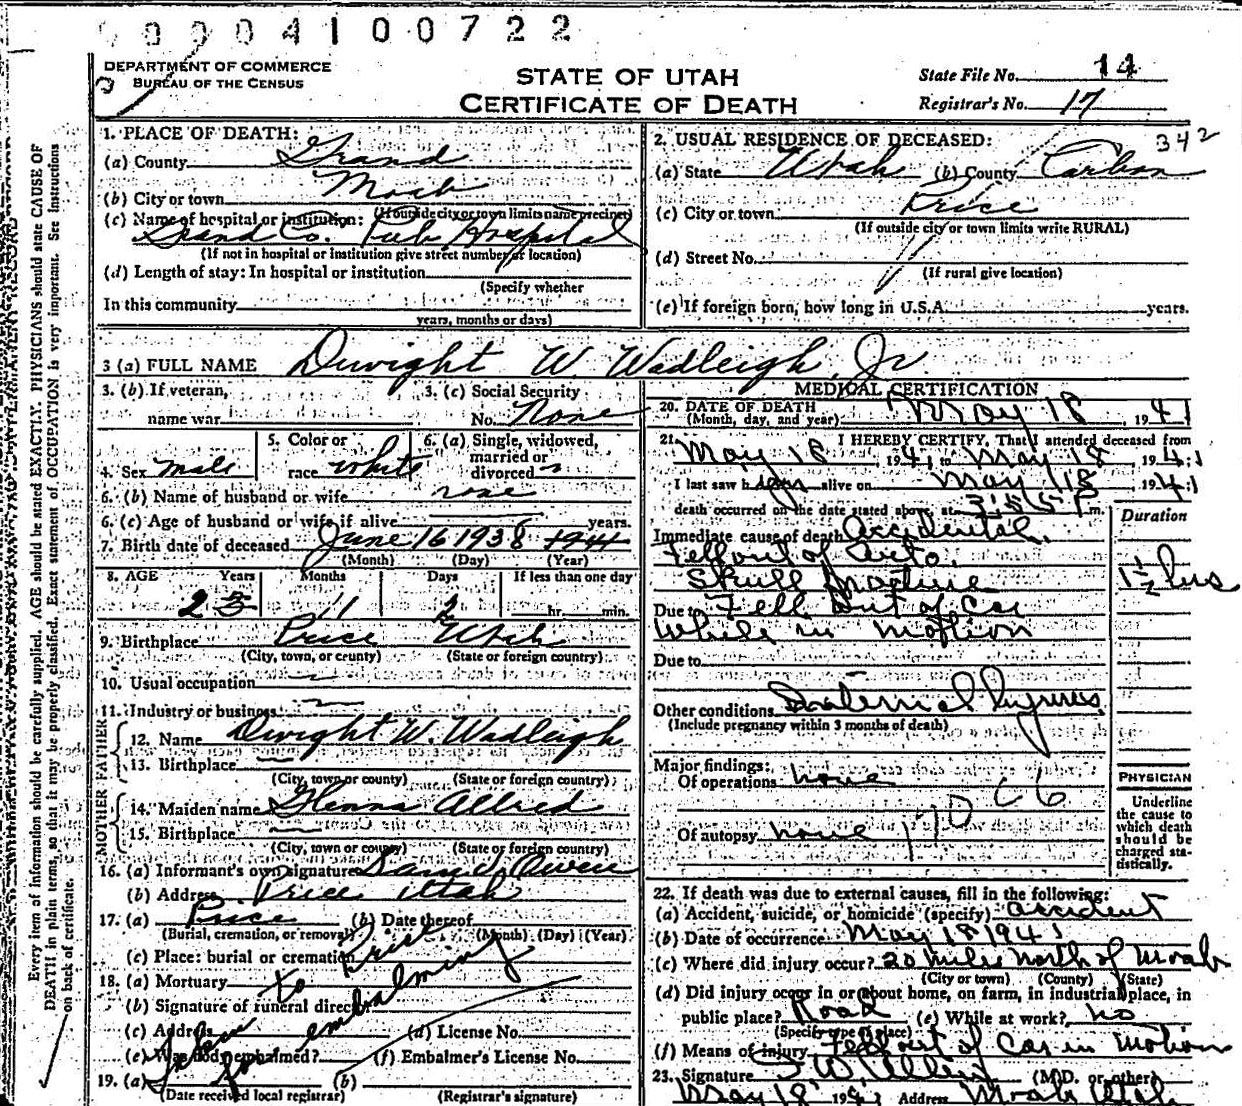 0 0 0 0 4 1 0 0 7 2 2
DEPARTMENT OF COMMERCE
BUREAU OF THE CENSUS
STATE OF UTAH
CERTIFICATE OF DEATH
State File No. 14
Registrar's No. 17
Every item of information should be carefully supplied. AGE should be stated EXACTLY. PHYSICIANS should state CAUSE OF
DEATH in plain terms, so that it may be properly classified. Exact statement of OCCUPATION is very important. See Instructions
on back of certificate.
1. PLACE OF DEATH:
(a) County Grand
(b) City or town Moab
(If outside city or town limits name precinct)
(c) Name of hospital or institution:
Grand Co. Pub. Hospital
(If not in hospital or institution give street number or location)
(d) Length of stay: In hospital or institution
(Specify whether
In this community
years, months or days)
2. USUAL RESIDENCE OF DECEASED: 342
(a) State Utah (b) County Carbon
(c) City or town Price
(If outside city or town limits write RURAL)
(d) Street No.
(If rural give location)
(e) If foreign born, how long in U.S.A. years.
3 (a) FULL NAME Dwight W. Wadleigh, Jr
3. (b) If veteran,
name war
3. (c) Social Security
No. None
4. Sex male
5. Color or
race white
6. (a) Single, widowed,
married or
divorced s
6. (b) Name of husband or wife none
6. (c) Age of husband or wife if alive years.
7. Birth date of deceased June 16 1938 1941
(Month) (Day) (Year)
8. AGE Years Months Days If less than one day
2 3 11 2 hr. min.
9. Birthplace Price Utah
(City, town, or county) (State or foreign country)
10. Usual occupation —
11. Industry or business —
FATHER
12. Name Dwight W. Wadleigh
13. Birthplace —
(City, town or county) (State or foreign country)
MOTHER
14. Maiden name Glenna Allred
15. Birthplace —
(City, town or county) (State or foreign country)
16. (a) Informant's own signature Sam J. Owen
(b) Address Price Utah
17. (a) Price (b) Date thereof
(Burial, cremation, or removal) (Month) (Day) (Year)
(c) Place: burial or cremation
18. (a) Mortuary
(b) Signature of funeral director
(c) Address (d) License No.
(e) Was body embalmed? (f) Embalmer's License No.
Taken to Price for embalming
19. (a) (b)
(Date received local registrar) (Registrar's signature)
MEDICAL CERTIFICATION
20. DATE OF DEATH
(Month, day, and year) May 18, 1941
21. I HEREBY CERTIFY, That I attended deceased from
May 18, 1941, to May 18, 1941
I last saw him alive on May 18, 1941
death occurred on the date stated above, at 3:55 P m.
Duration
Immediate cause of death Accidental.
Fell out of Auto.
Skull fracture 1½ hrs
Due to Fell out of car
while in motion
Due to
Other conditions Internal Injuries
(Include pregnancy within 3 months of death)
Major findings:
Of operations none
170 C6
Of autopsy none
PHYSICIAN
Underline
the cause to
which death
should be
charged sta-
tistically.
22. If death was due to external causes, fill in the following:
(a) Accident, suicide, or homicide (specify) accident
(b) Date of occurrence May 18 1941
(c) Where did injury occur? 20 miles north of Moab
(City or town) (County) (State)
(d) Did injury occur in or about home, on farm, in industrial place, in
public place? Road (e) While at work? no
(Specify type of place)
(f) Means of injury Fell out of car in motion
23. Signature W. Allen (M.D. or other)
May 18 1941 Address Moab Utah